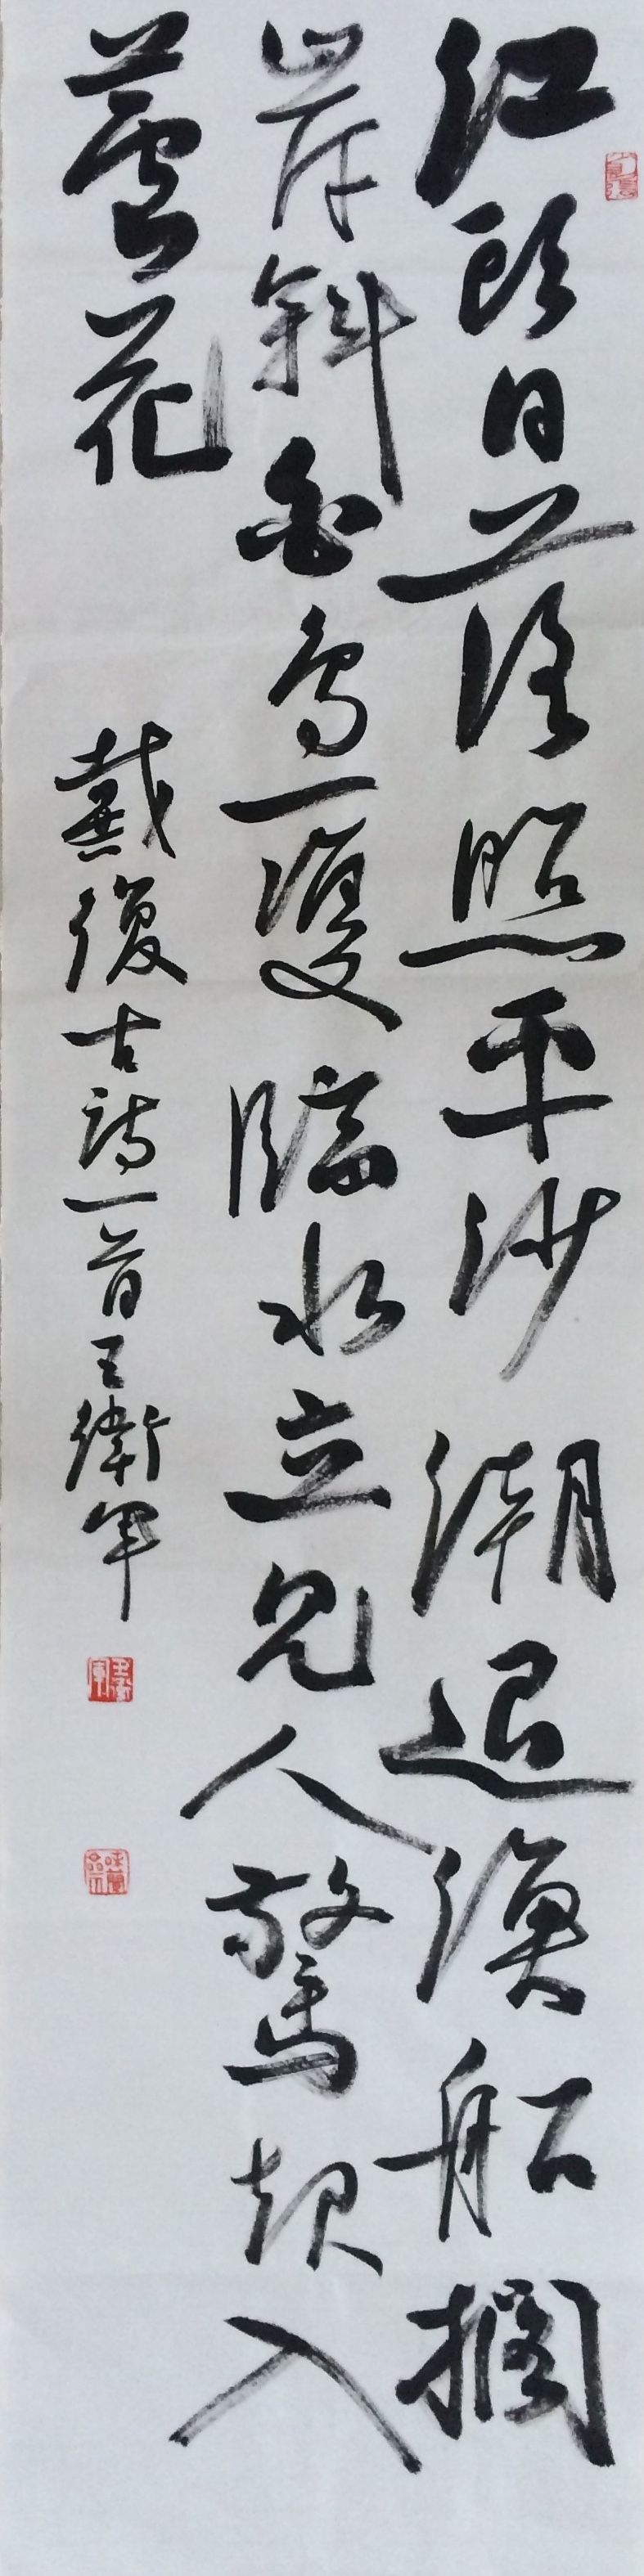 江頭日落照平沙潮退漁船擱
岸斜白鳥一雙臨水立見人驚起入
蘆花
戴復古詩一首王衛軍